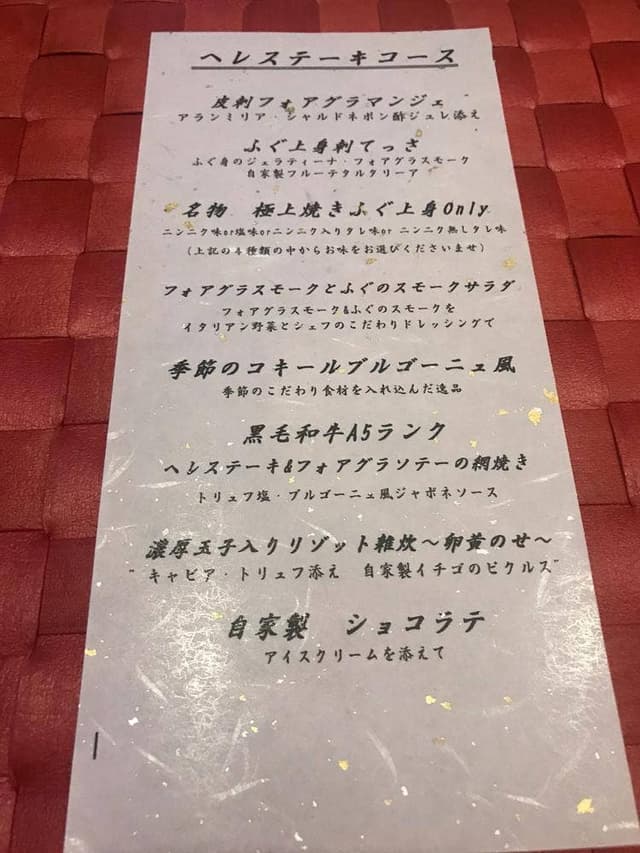 ヘレステーキコース
皮刺フォアグラマンジェ
アランミリア・シャルドネポン酢ジュレ添え
ふぐ上身刺てっさ
ふぐ身のジェラティーナ・フォアグラスモーク
自家製フルーテタルタリーア
名物　極上焼きふぐ上身Only
ニンニク味or塩味orニンニク入りタレ味or ニンニク無しタレ味
(上記の4種類の中からお味をお選びくださいませ)
フォアグラスモークとふぐのスモークサラダ
フォアグラスモーク&ふぐのスモークを
イタリアン野菜とシェフのこだわりドレッシングで
季節のコキールブルゴーニュ風
季節のこだわり食材を入れ込んだ逸品
黒毛和牛A5ランク
ヘレステーキ&フォアグラソテーの網焼き
トリュフ塩・ブルゴーニュ風ジャポネソース
濃厚玉子入りリゾット雑炊～卵黄のせ～
"キャビア・トリュフ添え　自家製イチゴのピクルス"
自家製　ショコラテ
アイスクリームを添えて